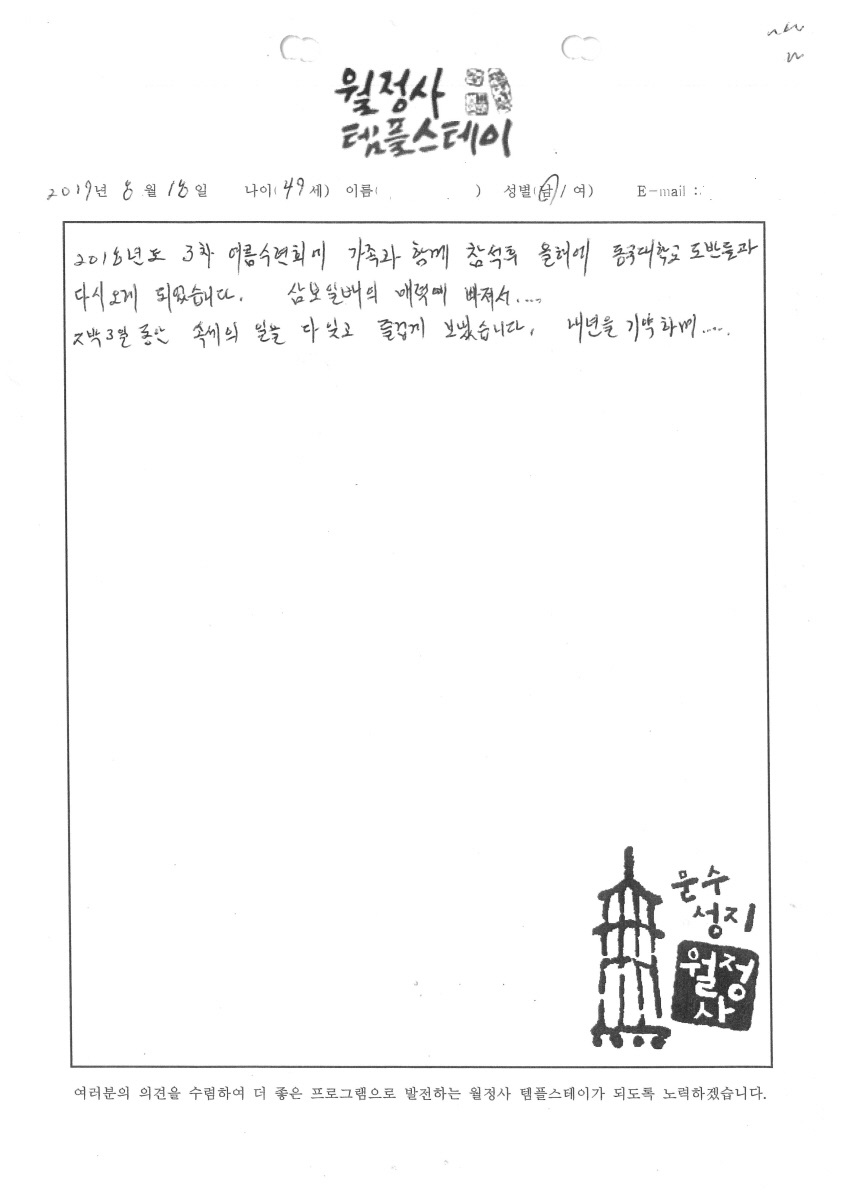 월정사
템플스테이
2019년 8월 18일 나이(49세) 이름( ) 성별(남/여) E-mail :
2018년도 3차 여름수련회에 가족과 함께 참석후 올해에 동국대학교 도반들과
다시오게 되었습니다. 삼보일배의 매력에 빠져서....
2박3일 동안 속세의 일을 다 잊고 즐겁게 보냈습니다. 내년을 기약하며.....
문수
성지
월정
사
여러분의 의견을 수렴하여 더 좋은 프로그램으로 발전하는 월정사 템플스테이가 되도록 노력하겠습니다.